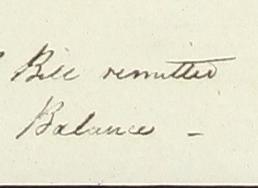 Bill remitted
Balance -